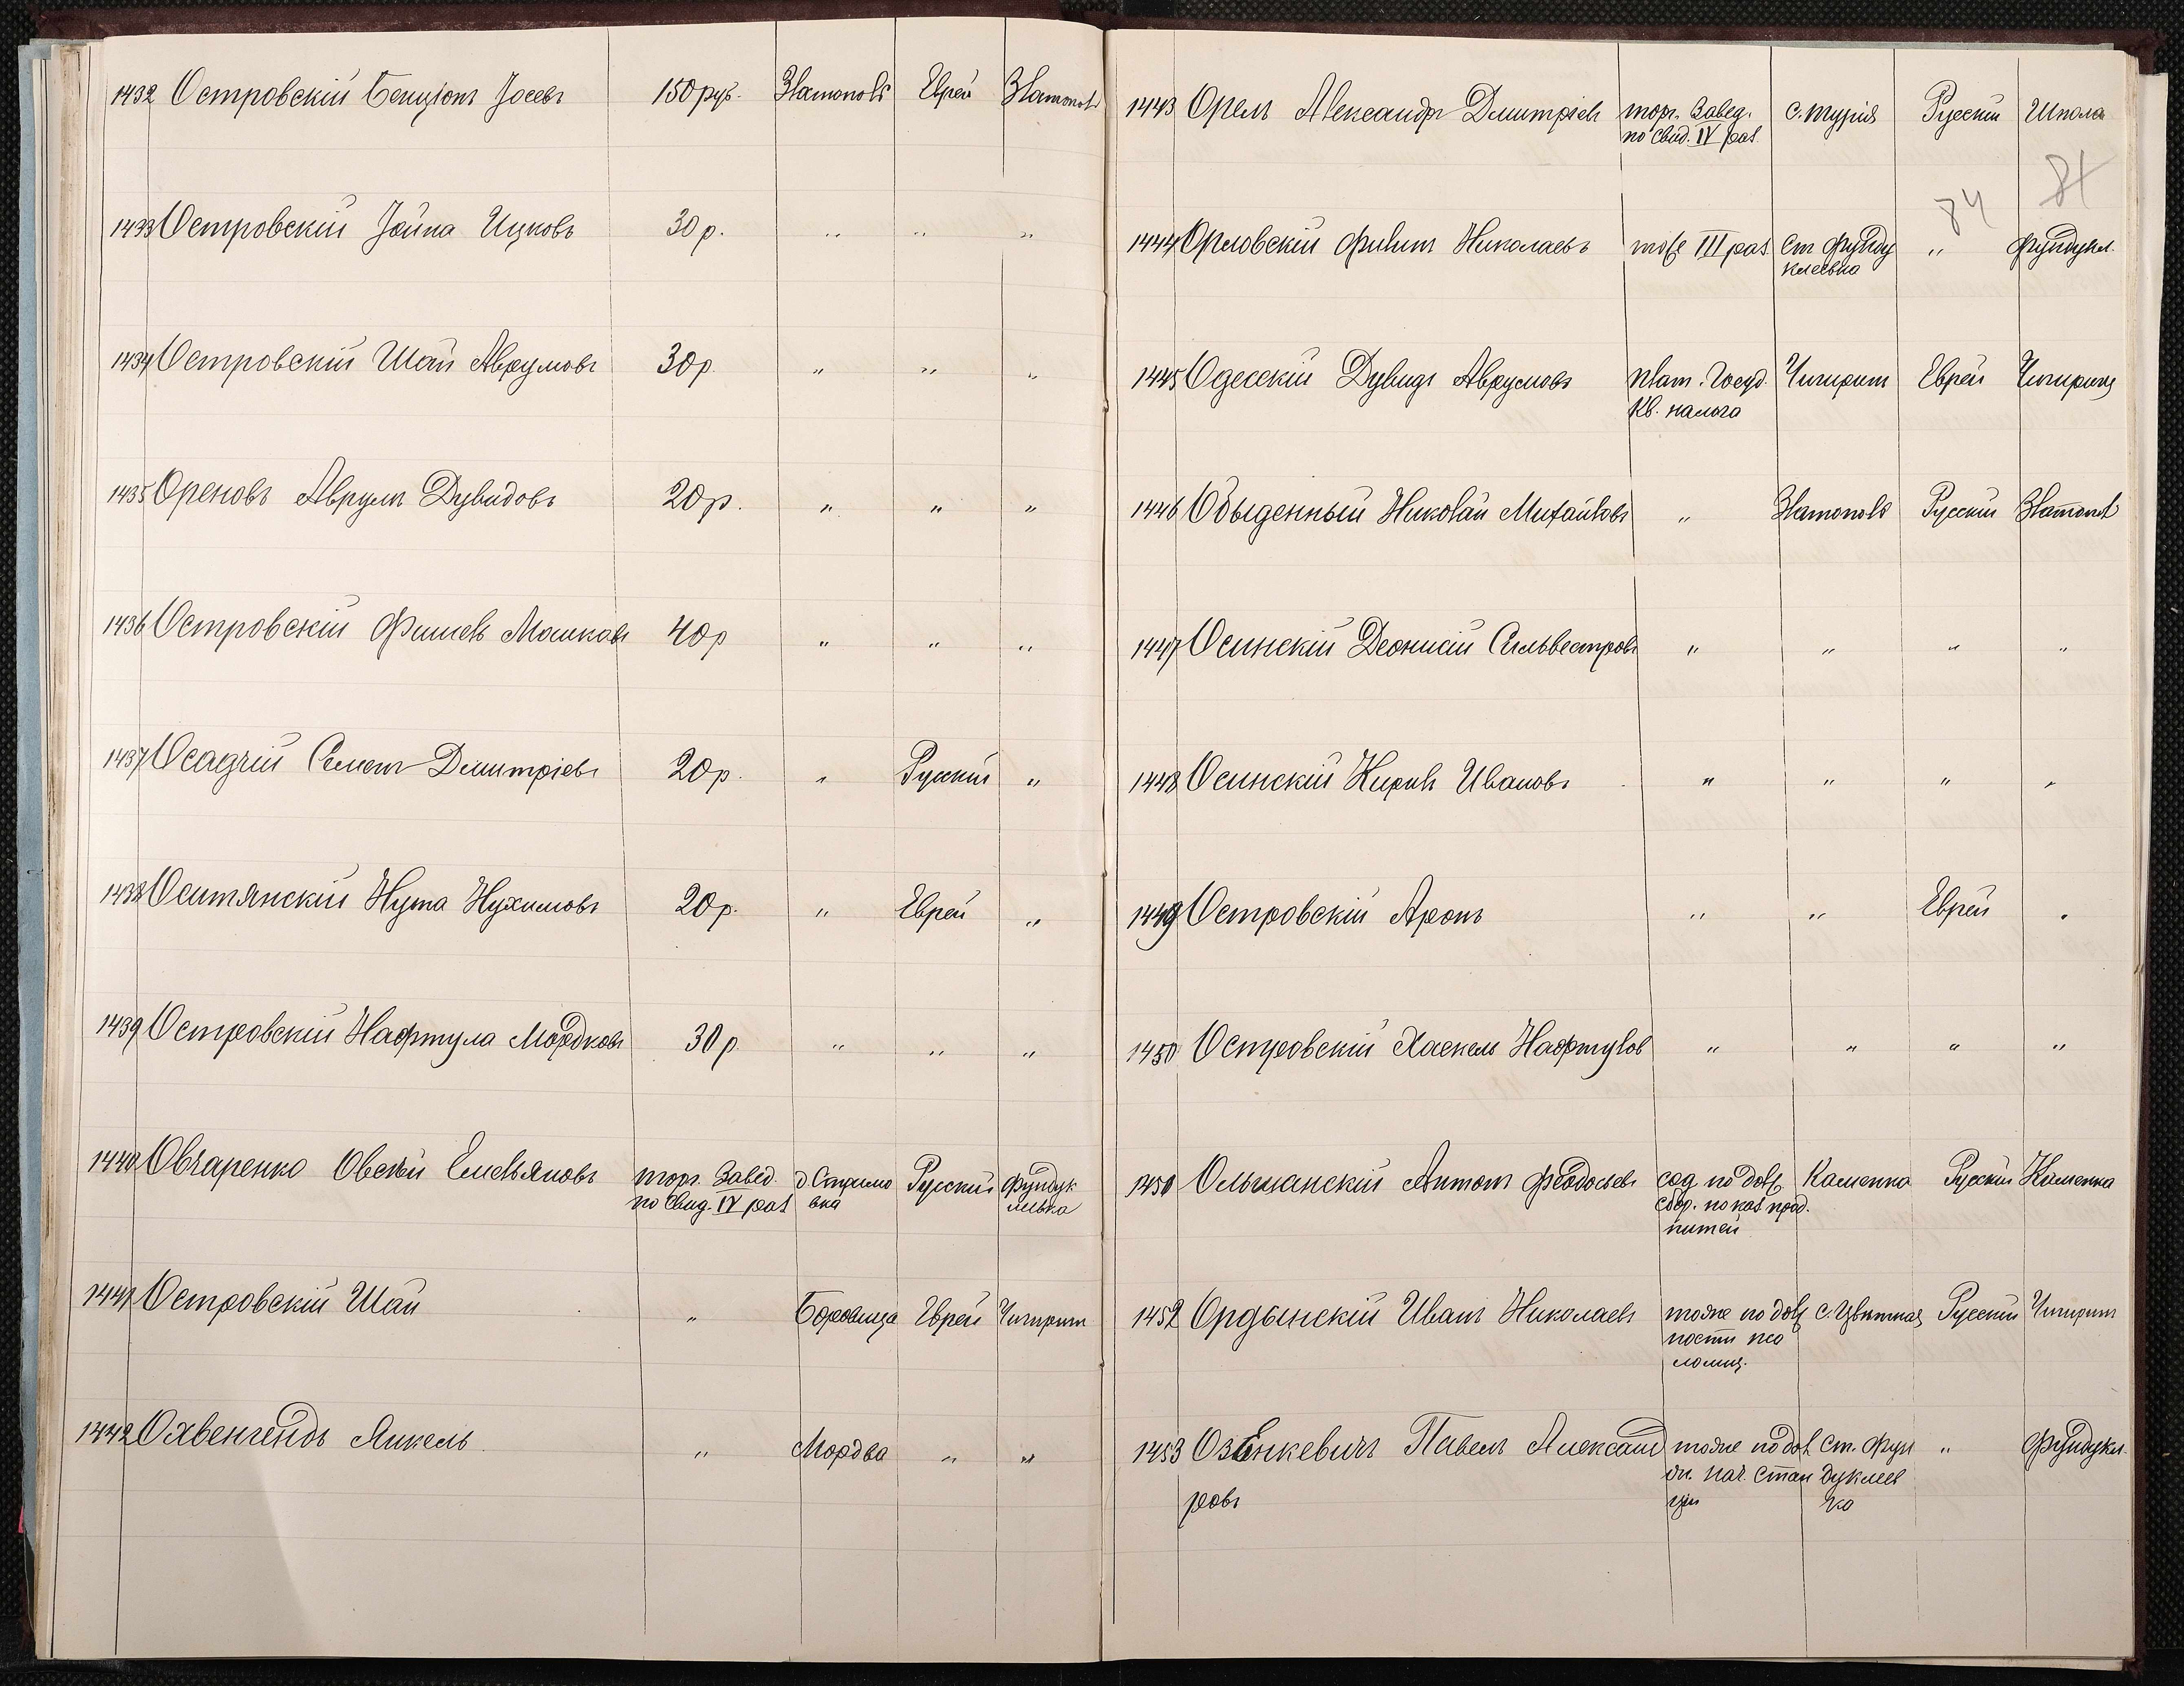 1432 Островскій Бенціонъ Іосевъ 150 руб. Златополь Еврей Златополь
1433 Островскій Іойна Ицковъ 30 р. " " "
1434 Островскій Шая Аврумовъ 30 р. " " "
1435 Ореновъ Аврумъ Дувидовъ 20 р. " " "
1436 Островскій Фишель Мошковъ 40 р " " "
1437 Осадчій Семенъ Дмитріевъ 20 р. " Русскій "
1438 Оситянскій Нута Нухимовъ 20 р. " Еврей "
1439 Островскій Нафтула Мордковъ 30 р. " " "
1440 Овчаренко Овсѣй Емельяновъ торг. Завед. д. Стримо Русскій Фундук
по Свид. IV раз вка леевка
1441 Островскій Шая " Боровица Еврей Чигирин
1442 Охвенгендъ Янкель " Мордва " "
1443 Орелъ Александръ Дмитріев торг. Завед. с. Турія Русскій Шпола
по Свид. IV раз.
84 84
1444 Орловскій Филип Николаевъ тоже III раз Ст Фунду " Фундукл.
клеевка
1445 Одесскій Дувидъ Аврумовъ плат. Госуд. Чигирин Еврей Чигирин
Кв. налога
1446 Обыденный Николай Михайловъ " Златополь Русскій Златопол
1447 Осинскій Деонисій Сильвестровъ " " " "
1448 Осинскій Кирилъ Ивановъ " " " "
1449 Островскій Аронъ " " Еврей "
1450 Островскій Хаскель Нафтулов " " " "
1450 Ольшанскій Антонъ Феодосьевъ сод по долж Каменка Русскій Каменка
сбор. по каз прод.
питей
1452 Ордынскій Иванъ Николаевъ тоже по долж с. Цвѣтная Русскій Чигирин
ности пса
ломщ.
1453 Озѣнкевичъ Павелъ Александ тоже по дол Ст. Фун " Фундукл.
ровъ дн. нач. Стан дуклеев
ціи ка